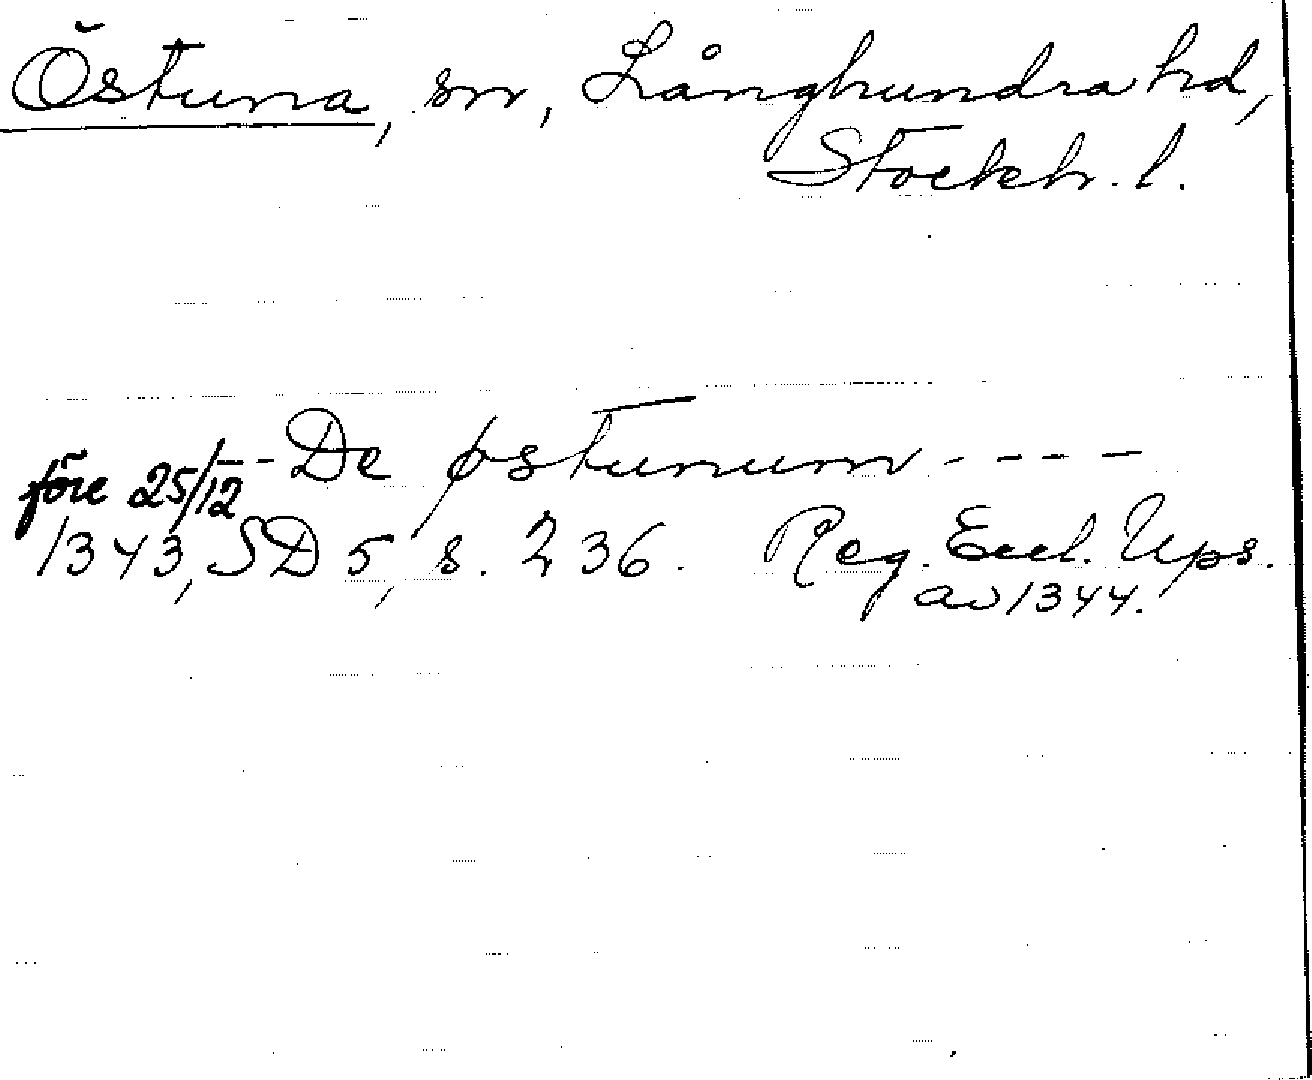 Östuna, sn, Långhundra hd,
Stockh. l.
- - De østunum - - - -
före 25/12
1343, SD 5, s. 236. Reg. Eccl. Ups.
av 1344.